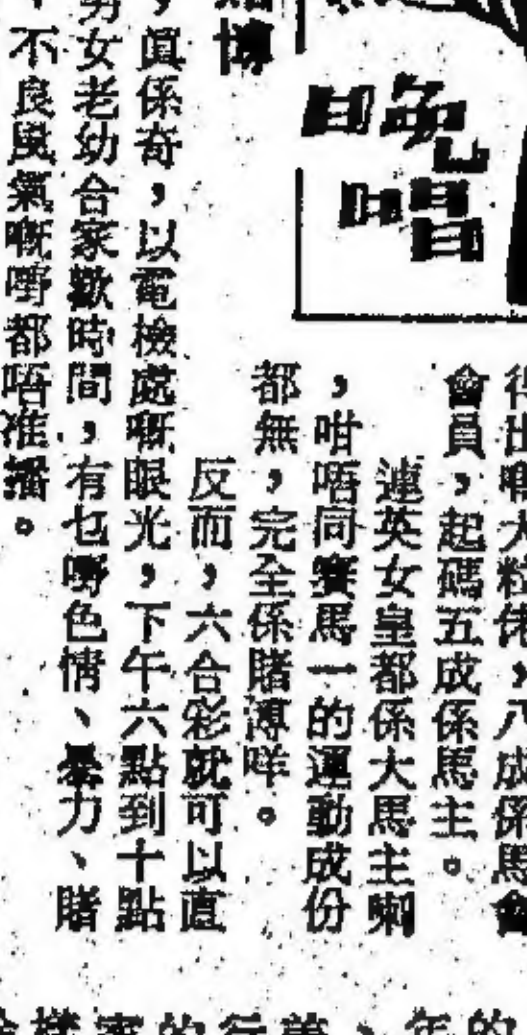 晚唱
賭博
出嘅大粒佬，八成係馬會
會員，起碼五成係馬主。
連英女皇都係大馬主喇
，咁唔同賽馬一的運動成份
都無，完全係賭博咩。
反而，六合彩就可以直
，眞係奇，以電檢處嘅眼光，下午六點到十點
男女老幼合家歡時間，有乜嘢色情、暴力、賭
、不良風氣嘅嘢都唔准播。